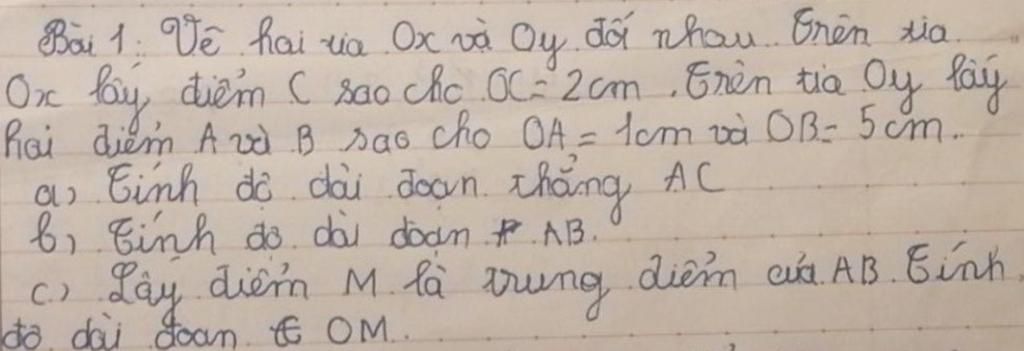 Bài 1: Vẽ hai tia Ox và Oy đối nhau. Trên tia
Ox lấy điểm C sao cho OC = 2cm. Trên tia Oy lấy
hai điểm A và B sao cho OA = 1cm và OB = 5cm.
a) Tính độ dài đoạn thẳng AC
b) Tính độ dài đoạn AB.
c) Lấy điểm M là trung điểm của AB. Tính
độ dài đoạn OM.